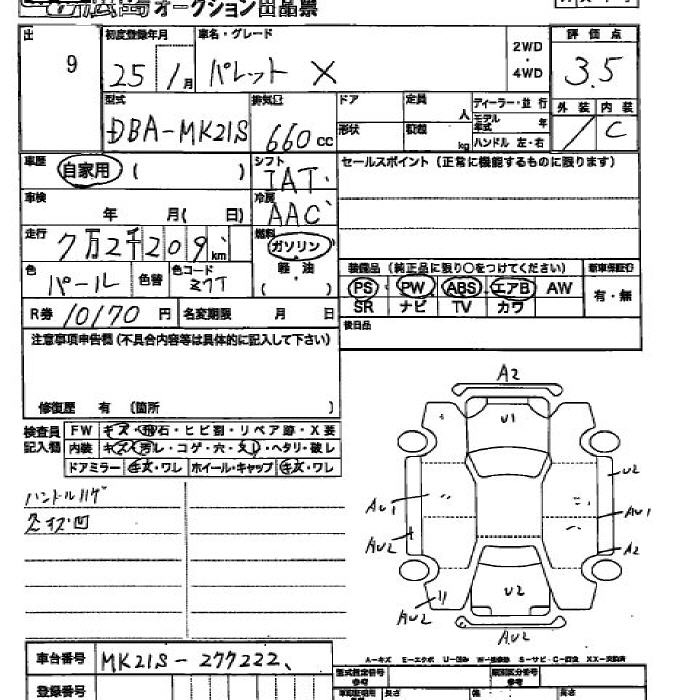 オークション出品票
出 9
初度登録年月 25年 1月
車名・グレード パレット X
2WD・4WD
評価点 3.5
型式 DBA-MK21S
排気量 660cc
ドア
定員 人
形状
積載 kg
ディーラー・並行
モデル年式 年
ハンドル 左・右
外装
内装 C
車歴 自家用 ( )
シフト IAT
セールスポイント (正常に機能するものに限ります)
車検 年 月( 日)
冷房 AAC
走行 7万2千209km
燃料 ガソリン
軽油
( )
色 パール
色替
色コード Z7T
装備品 (純正品に限り○をつけてください)
新車保証書
PS PW ABS エアB AW
有・無
SR ナビ TV カワ
R券 10170円
名変期限 月 日
後日品
注意事項申告欄 (不具合内容等は具体的に記入して下さい)
修復歴 有 (箇所 )
検査員記入欄
FW キズ・飛石・ヒビ割・リペア跡・X要
内装 キズ・汚レ・コゲ・穴・ヘタリ・破レ
ドアミラー キズ・ワレ ホイール・キャップ キズ・ワレ
ハンドルハゲ
A2
U1
U2
AU1
AU1
AU2
A2
U2
AU2
AU2
車台番号 MK21S-277222
A-キズ E-エクボ U-凹み W-補修跡 S-サビ C-腐食 XX-交換済
登録番号
型式指定番号
類別区分番号
長さ
幅
高さ